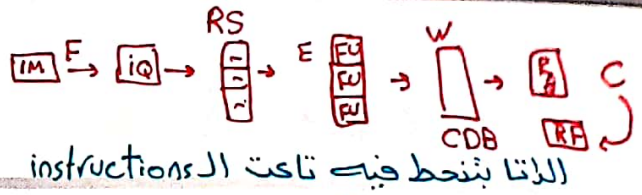 RS
W
IM F iQ E FU C
FU
FU
CDB RF
الداتا بتنحط فيه تاعت الـ instructions